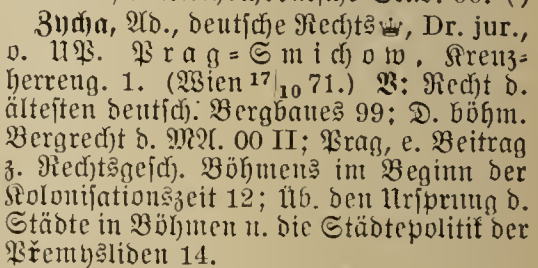 Zycha, Ad., deutsche Rechts♛, Dr. jur.,
o. UP. Prag=Smichow, Kreuz=
herreng. 1. (Wien 17/10 71.) V: Recht d.
ältesten deutsch. Bergbaues 99; D. böhm.
Bergrecht d. MA. 00 II; Prag, e. Beitrag
z. Rechtsgesch. Böhmens im Beginn der
Kolonisationszeit 12; Üb. den Ursprung d.
Städte in Böhmen u. die Städtepolitik der
Přemysliden 14.